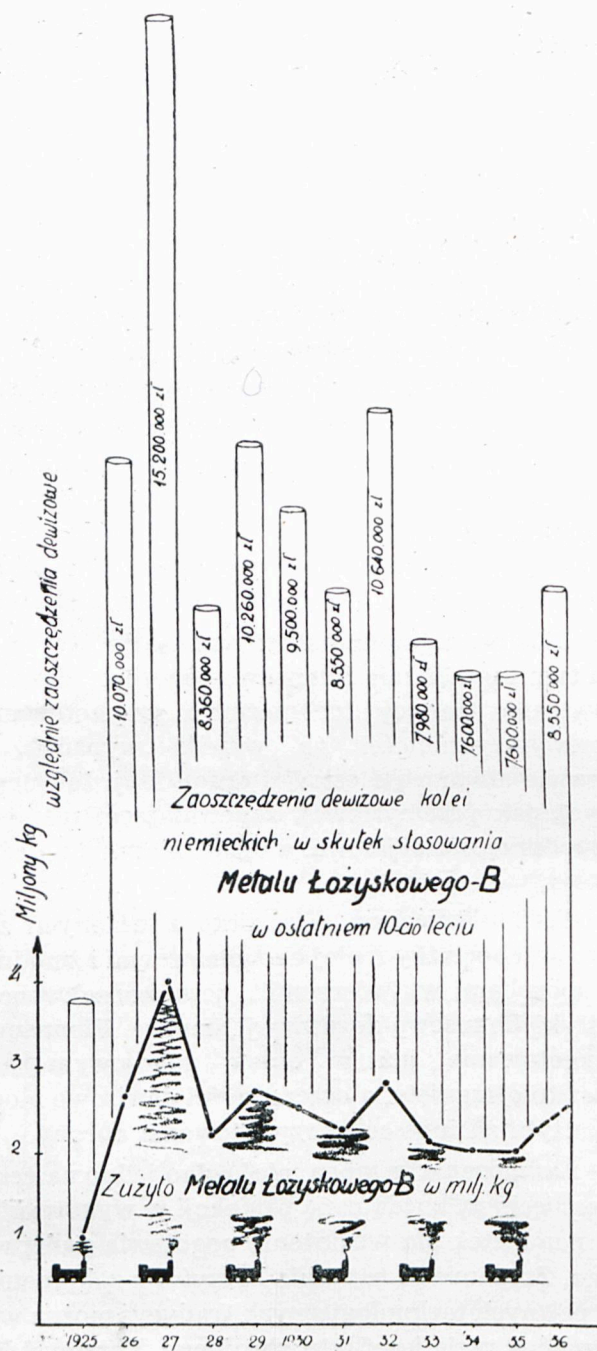 względnie zaoszczędzenia dewizowe
Miljony kg
10.070.000 zł
15.200.000 zł
8.360.000 zł
10.260.000 zł
9.500.000 zł
8.550 000 zł
10 640 000 zł
7.980 000 zł
7600.000 zł
7600.000 zł
8.550 000 zł
Zaoszczędzenia dewizowe kolei
niemieckich w skutek stosowania
Metalu Łożyskowego-B
w ostatniem 10-cio leciu
4
3
2
Zużyto Metalu Łożyskowego-B w milj. kg
1
1925 26 27 28 29 1930 31 32 33 34 35 36